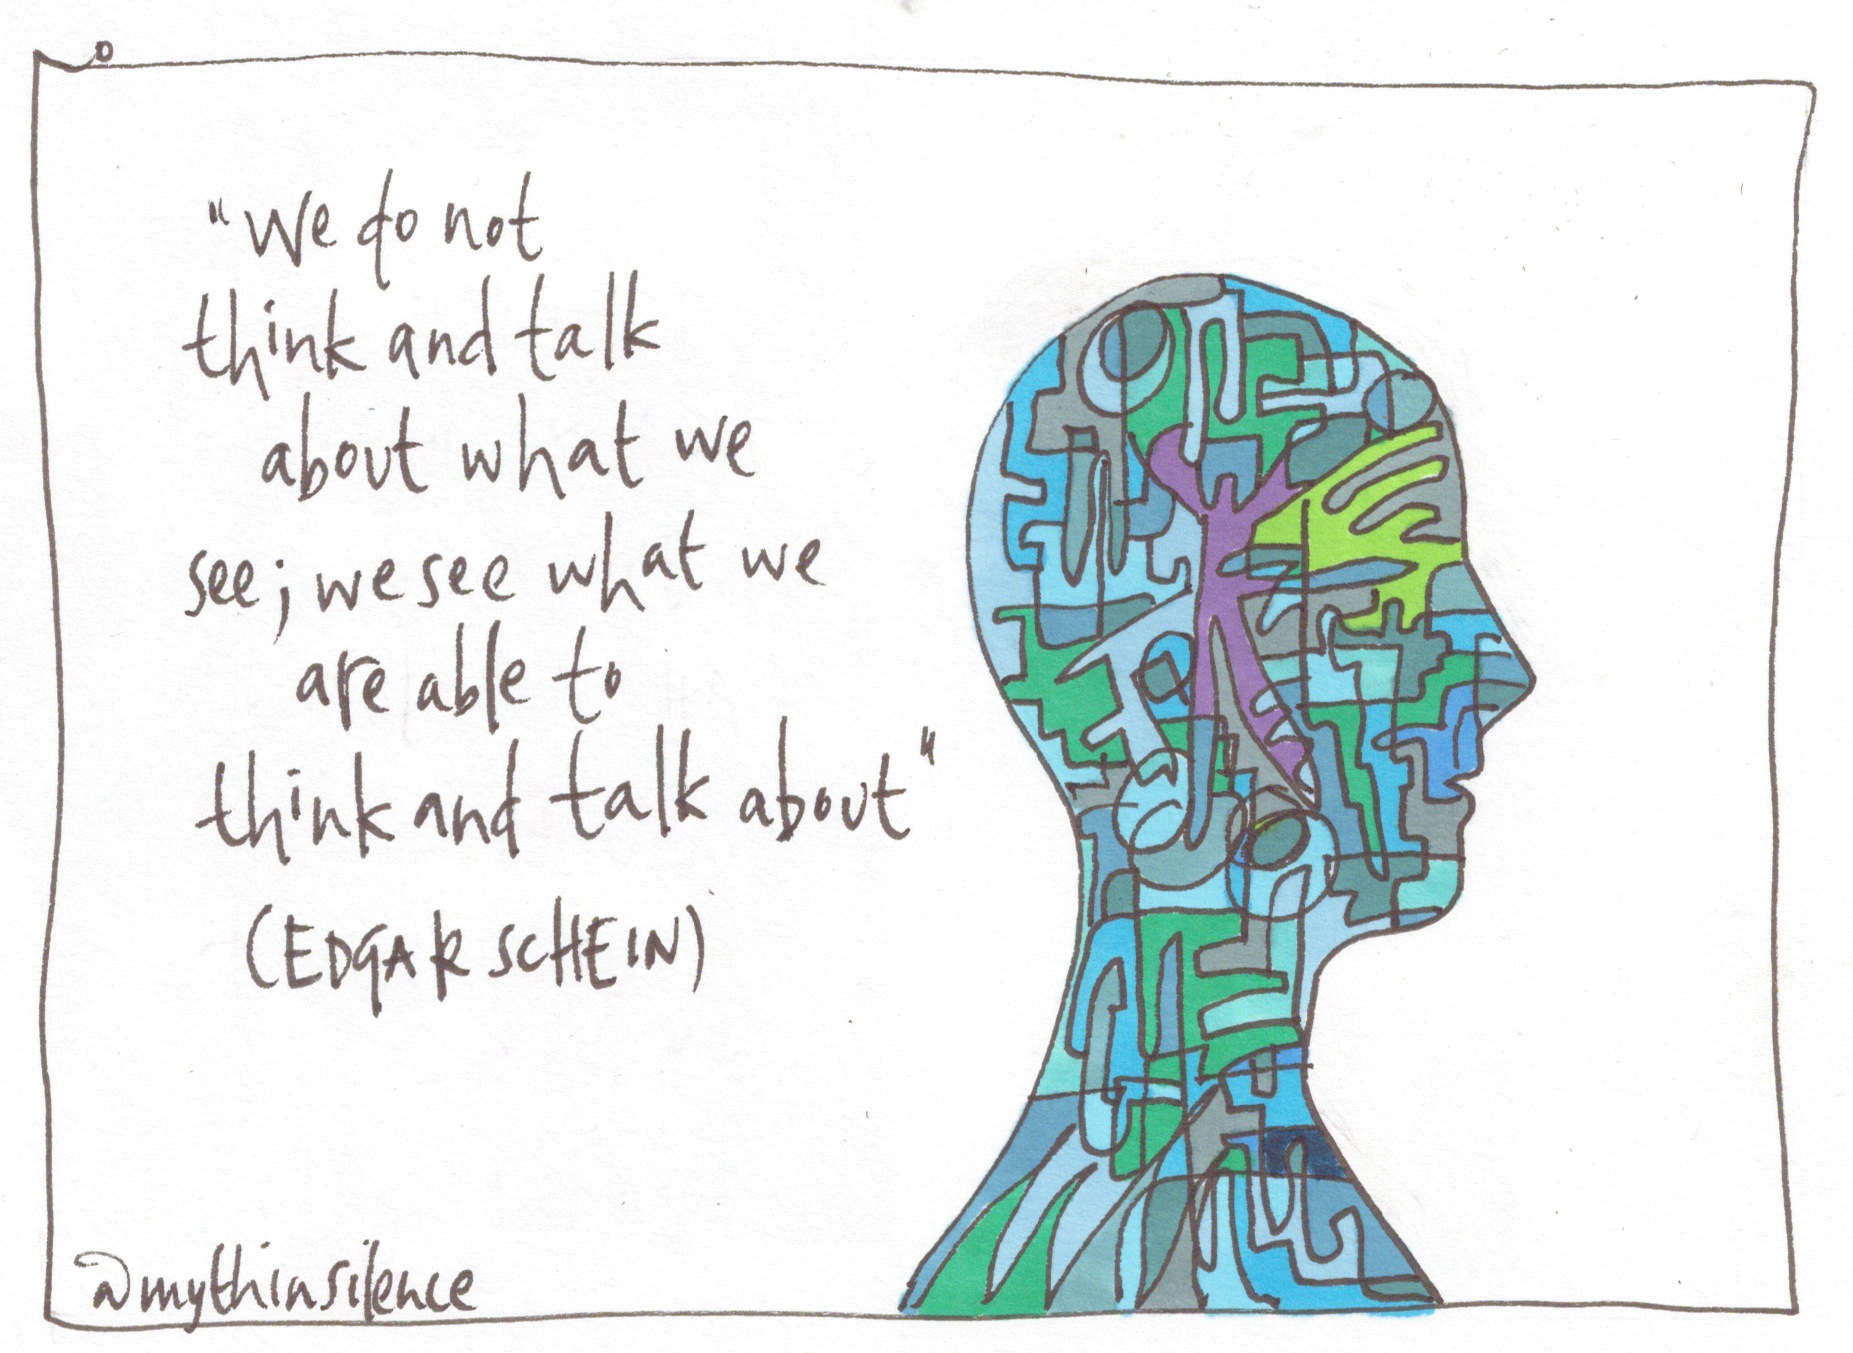 "We do not
think and talk
about what we
see; we see what we
are able to
think and talk about"
(EDGAR SCHEIN)
@mythinsilence